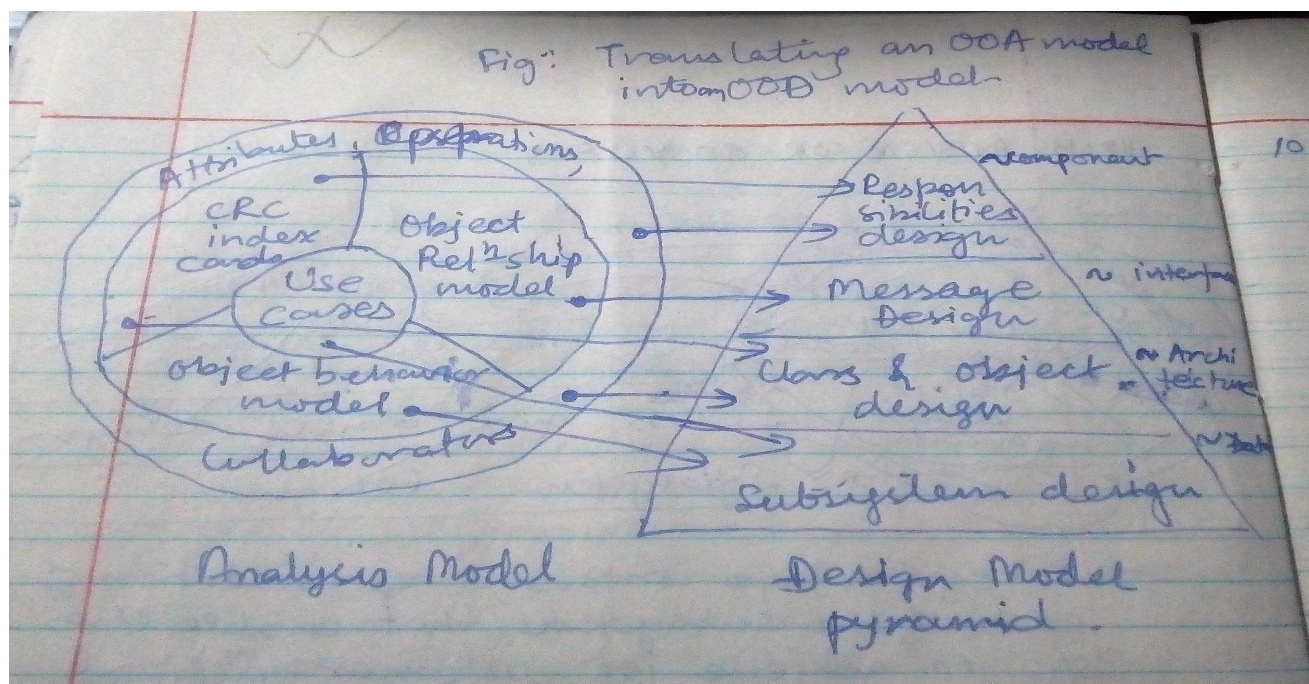 Fig:- Translating an OOA model
into an OOD model
Attributes, Operations,
CRC
index
cards
Object
Rel'n'ship
model
Use
cases
Object behavior
model
Collaborators
Analysis Model
~component
Respon
sibilities
design
~ interface
Message
Design
~ Archi
tecture
Class & object
design
Subsystem design
Design Model
pyramid.
10